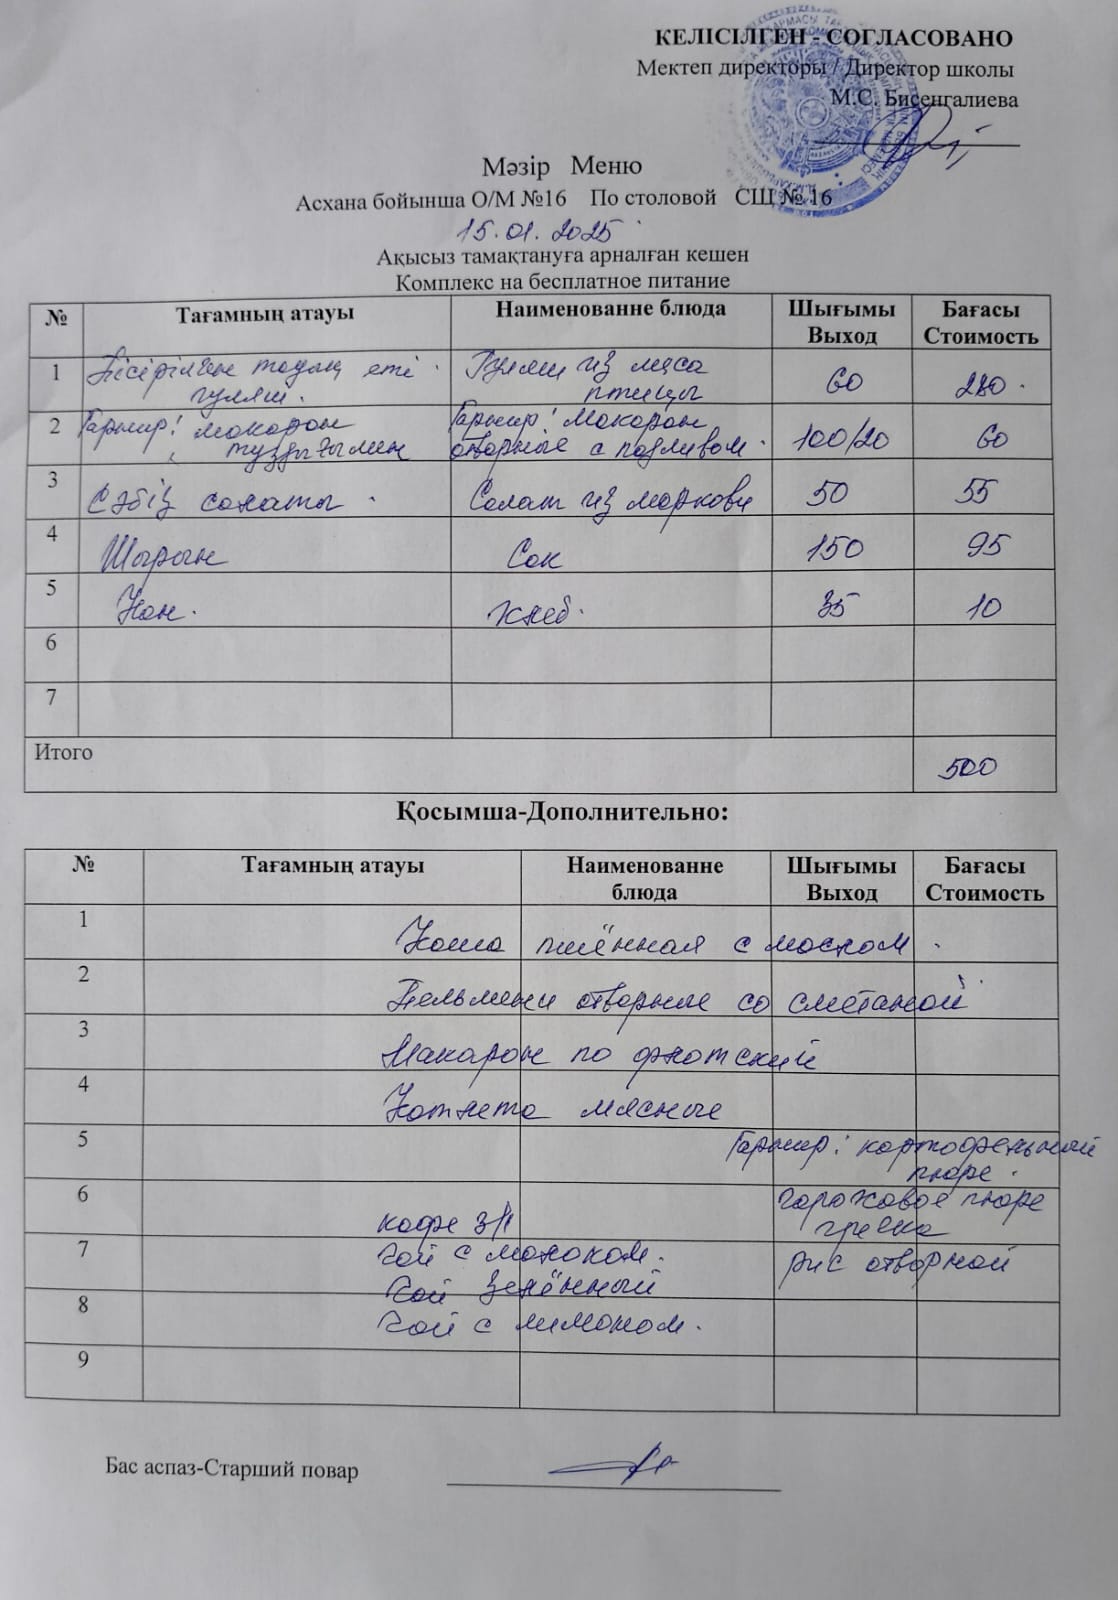 КЕЛІСІЛГЕН - СОГЛАСОВАНО
Мектеп директоры / Директор школы
М.С. Бисенгалиева
Мәзір Меню
Асхана бойынша О/М №16 По столовой СЩ № 16
15.01.2025
Ақысыз тамақтануға арналған кешен
Комплекс на бесплатное питание
№ Тағамның атауы Наименованне блюда Шығымы Выход Бағасы Стоимость
1 Пісірілген тауық еті гуляш. Гуляш из мяса птицы 60 280
2 Гарнир: макарон тұздығымен Гарнир: Макарон отворные с подливом 100/20 60
3 Сәбіз салаты Салат из моркови 50 55
4 Шырын Сок 150 95
5 Нан. Хлеб. 35 10
6
7
Итого 500
Қосымша-Дополнительно:
№ Тағамның атауы Наименованне блюда Шығымы Выход Бағасы Стоимость
1 Каша пшённая с маслом.
2 Пельмени отворные со сметаной
3 Макарон по флотский
4 Котлета мясные
5 Гарнир: картофельный пюре.
6 кофе 3/1 гороховое пюре гречка
7 чай с молоком. рис отворной
чай зелённый
8 чай с лимоном.
9
Бас аспаз-Старший повар